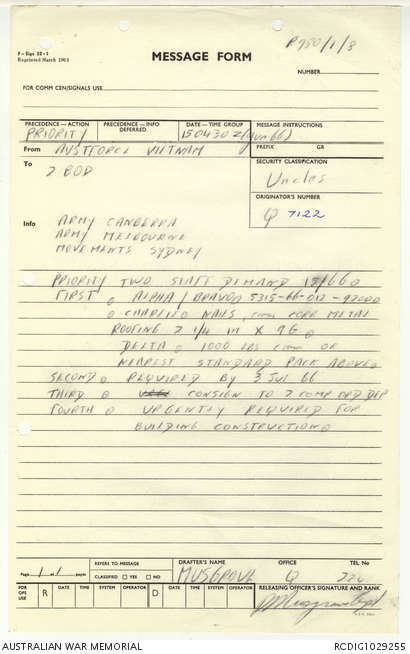 F-Sigs 52-1
Reprinted March 1963
MESSAGE FORM
R780/1/3
NUMBER
FOR COMM CEN/SIGNALS USE
PRECEDENCE—ACTION
PRIORITY
PRECEDENCE—INFO
DEFERRED
DATE—TIME GROUP
150430Z (Jun 66)
MESSAGE INSTRUCTIONS
From AUSTFORCE VIETNAM
PREFIX GR
To
2 BOD
SECURITY CLASSIFICATION
Unclas
ORIGINATOR'S NUMBER
Q 7122
Info ARMY CANBERRA
ARMY MELBOURNE
MOVEMENTS SYDNEY
PRIORITY TWO STAFF DEMAND 15/66
FIRST ALPHA / BRAVO 5315-66-012-
NAILS, CORR METAL
ROOFING 2 1/4 IN X 9G
DELTA 1000 LBS OR
NEAREST STANDARD PACK ABOVE
SECOND REQUIRED BY 3 JUL 66
THIRD CONSIGN TO 2 COMP ORD DEP
FOURTH URGENTLY REQUIRED FOR
BUILDING CONSTRUCTION
Page 1 of 1 pages
REFERS TO MESSAGE
CLASSIFIED YES NO
DRAFTER'S NAME
MUSGROVE
OFFICE
Q
TEL No
226
FOR OPS USE
R
DATE TIME SYSTEM OPERATOR
D
DATE TIME SYSTEM OPERATOR
RELEASING OFFICER'S SIGNATURE AND RANK
Musgrove Capt
AUSTRALIAN WAR MEMORIAL
RCDIG1029255